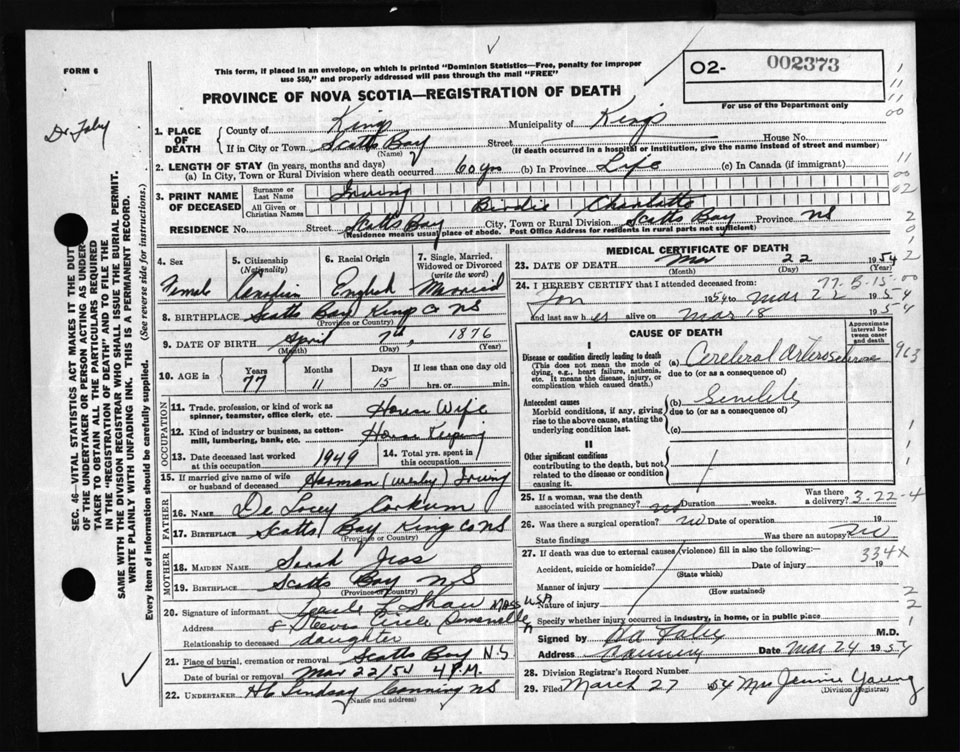 FORM 6
This form, if placed in an envelope, on which is printed "Dominion Statistics—Free, penalty for improper
use $50," and properly addressed will pass through the mail "FREE"
O2- 002373
For use of the Department only
PROVINCE OF NOVA SCOTIA—REGISTRATION OF DEATH
1. PLACE OF DEATH
County of Kings Municipality of Kings
If in City or Town Scotts Bay Street House No.
(Name) (If death occurred in a hospital or institution, give the name instead of street and number)
2. LENGTH OF STAY (in years, months and days)
(a) In City, Town or Rural Division where death occurred 60 yrs (b) In Province Life (c) In Canada (if immigrant)
3. PRINT NAME OF DECEASED
Surname or Last Name Irving
All Given or Christian Names Birdie Charlotte
RESIDENCE No. Street Scotts Bay City, Town or Rural Division Scotts Bay Province NS
(Residence means usual place of abode. Post Office Address for residents in rural parts not sufficient)
4. Sex Female
5. Citizenship (Nationality) Canadian
6. Racial Origin English
7. Single, Married, Widowed or Divorced (write the word) Married
8. BIRTHPLACE Scotts Bay Kings Co NS
(Province or Country)
9. DATE OF BIRTH April 7th, 1876
(Month) (Day) (Year)
10. AGE in Years 77 Months 11 Days 15 If less than one day hrs. or min.
OCCUPATION
11. Trade, profession, or kind of work as spinner, teamster, office clerk, etc. House Wife
12. Kind of industry or business, as cotton-mill, lumbering, bank, etc. House Keeping
13. Date deceased last worked at this occupation 1949
14. Total yrs. spent in this occupation
15. If married give name of wife or husband of deceased Harman (Wesley) Irving
FATHER
16. Name De Losey Corkum
17. Birthplace Scotts Bay Kings Co NS
(Province or Country)
MOTHER
18. MAIDEN NAME Sarah Jess
19. BIRTHPLACE Scotts Bay N S
(Province or Country)
20. Signature of informant L Shaw
Address 8 Stevens Circle Somerville Mass USA
Relationship to deceased daughter
21. Place of burial, cremation or removal Scotts Bay N.S
Date of burial or removal Mar 22/54 4 P.M.
22. UNDERTAKER Lindsay Canning NS
(Name and address)
MEDICAL CERTIFICATE OF DEATH
23. DATE OF DEATH Mar 22 1954
(Month) (Day) (Year)
24. I HEREBY CERTIFY that I attended deceased from:
Jan 1954 to Mar 22 1954
and last saw her alive on Mar 18 1954
77-B-15-00
CAUSE OF DEATH
Approximate interval between onset and death
I
Disease or condition directly leading to death
(This does not mean the mode of dying, e.g., heart failure, asthenia, etc. It means the disease, injury, or complication which caused death.)
(a) Cerebral Arterosclerosis
due to (or as a consequence of)
963
Antecedent causes
Morbid conditions, if any, giving rise to the above cause, stating the underlying condition last.
(b) Senility
due to (or as a consequence of)
(c)
II
Other significant conditions
contributing to the death, but not related to the disease or condition causing it.
25. If a woman, was the death associated with pregnancy? no Duration weeks. Was there a delivery? 3-22-4
26. Was there surgical operation? no Date of operation 19
State findings Was there an autopsy? no
27. If death was due to external causes (violence) fill in also the following:—
334X
Accident, suicide or homicide? Date of injury 19
(State which)
Manner of injury
(How sustained)
Nature of injury
Specify whether injury occurred in industry, in home, or in public place
Signed by M.D.
Address Canning Date Mar 24 1954
28. Division Registrar's Record Number
29. Filed March 27 54 Mrs Jennie Young
(Division Registrar)
SEC. 46—VITAL STATISTICS ACT MAKES IT THE DUTY
OF THE UNDERTAKER OR PERSON ACTING AS UNDER-
TAKER TO OBTAIN ALL THE PARTICULARS REQUIRED
IN THE "REGISTRATION OF DEATH" AND TO FILE THE
SAME WITH THE DIVISION REGISTRAR WHO SHALL ISSUE THE BURIAL PERMIT.
WRITE PLAINLY WITH UNFADING INK. THIS IS A PERMANENT RECORD.
Every item of information should be carefully supplied. (See reverse side for instructions.)